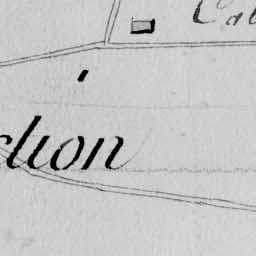 Cab
ction